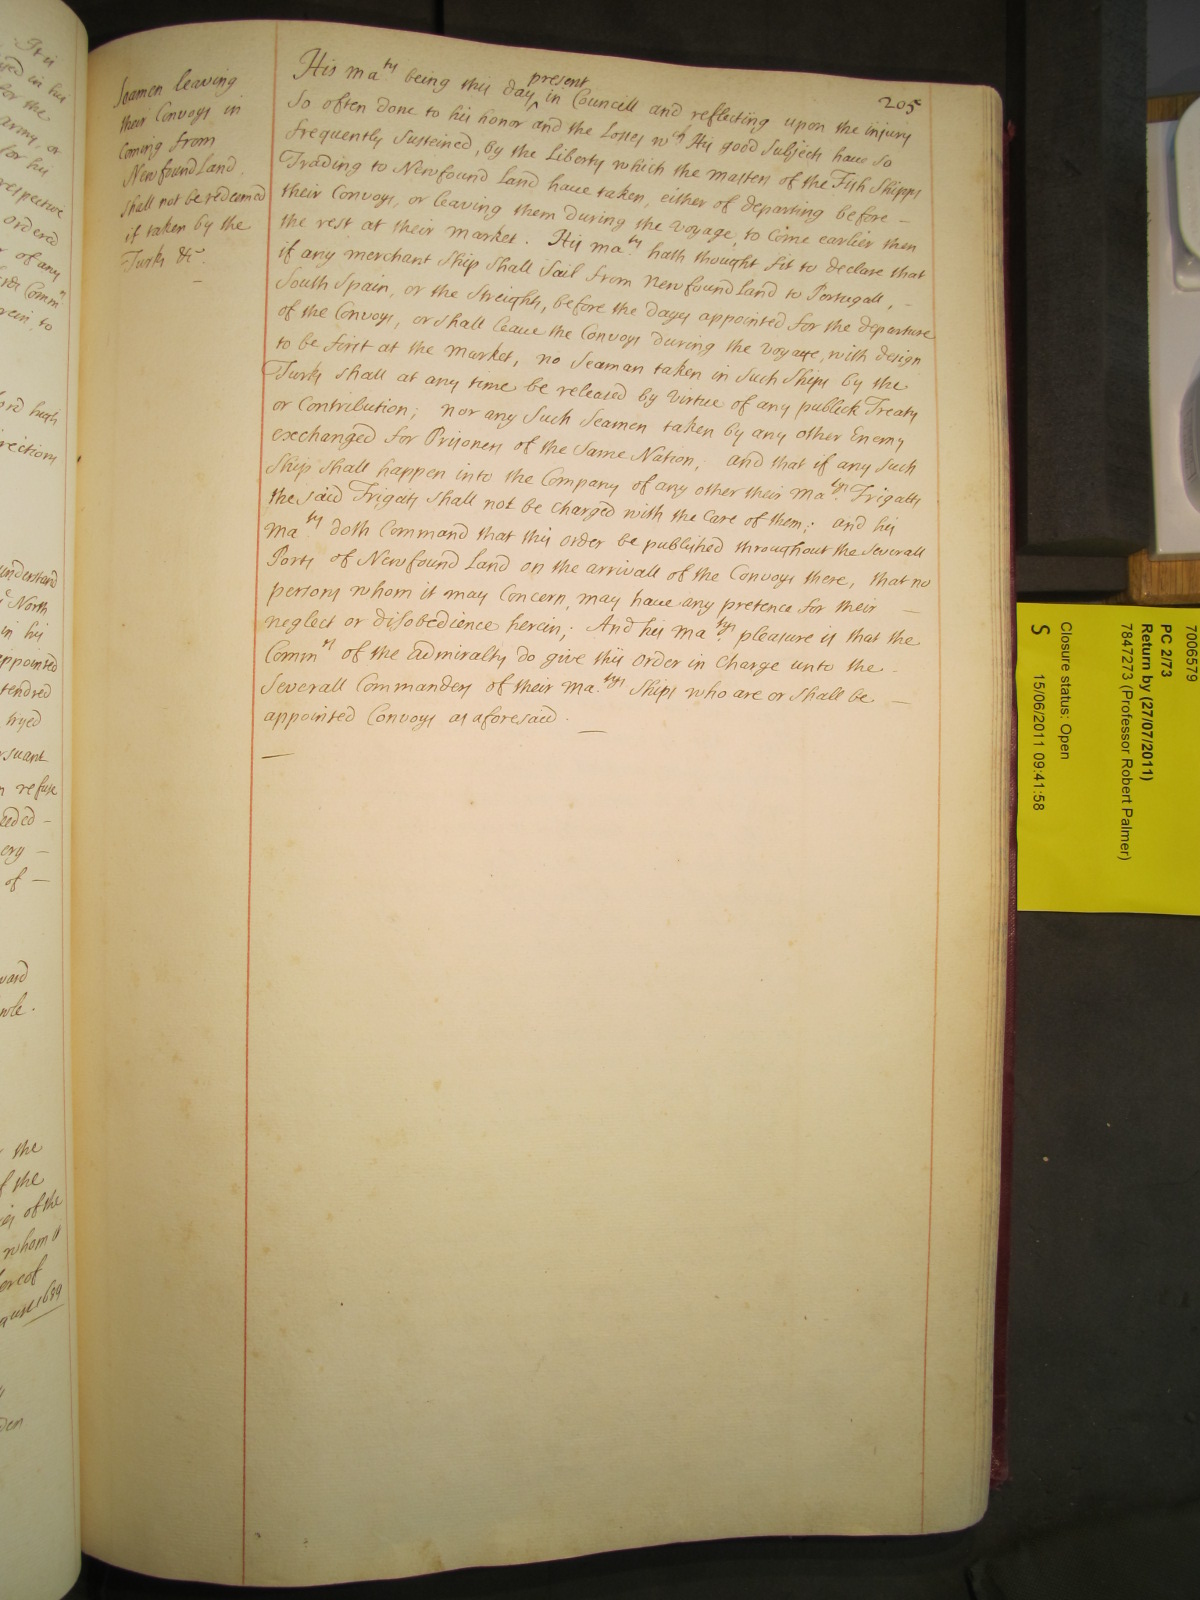 205
Seamen leaving
their Convoys in
Coming from
Newfound Land,
shall not be redeemed
if taken by the
Turks &c
His Ma.ty being this day present in Councill and reflecting upon the injury
So often done to his honor and the Losses wch His good Subjects have so
frequently Sustained, by the Liberty which the masters of the Fish Shipps
Trading to Newfound Land have taken, either of departing before –
their Convoys, or leaving them during the voyage, to Come earlier then
the rest at their market. His ma.ty hath thought fit to declare that
if any merchant Ship Shall Sail from Newfound Land to Portugall, –
South Spain, or the Streights, before the days appointed for the departure
of the Convoys, or shall leave the Convoys during the voyage, with design
to be first at the market, no Seaman taken in Such Ships by the
Turks shall at any time be released by Virtue of any publick Treaty
or Contribution; nor any Such Seamen taken by any other Enemy
exchanged for Prisoners of the Same Nation; and that if any Such
Ship shall happen into the Company of any other their Ma.tys Frigatts
the said Frigats shall not be charged with the Care of them; and his
Ma.ty doth Command that this order be published throughout the severall
Ports of Newfound Land on the arrivall of the Convoys there, that no
persons whom it may Concern, may have any pretence for their –
neglect or disobedience herein; And his Ma.tys pleasure is that the
Commrs of the Admiralty do give this order in Charge unto the –
Severall Commanders of their Ma.tys Ships who are or shall be –
appointed Convoys as aforesaid. –
understand
North
in his
appointed
tendred
refuse
of –
the
of the
of the
whom
1689
7006579
PC 2/73
Return by (27/07/2011)
7847273 (Professor Robert Palmer)
Closure status: Open
S 15/06/2011 09:41:58